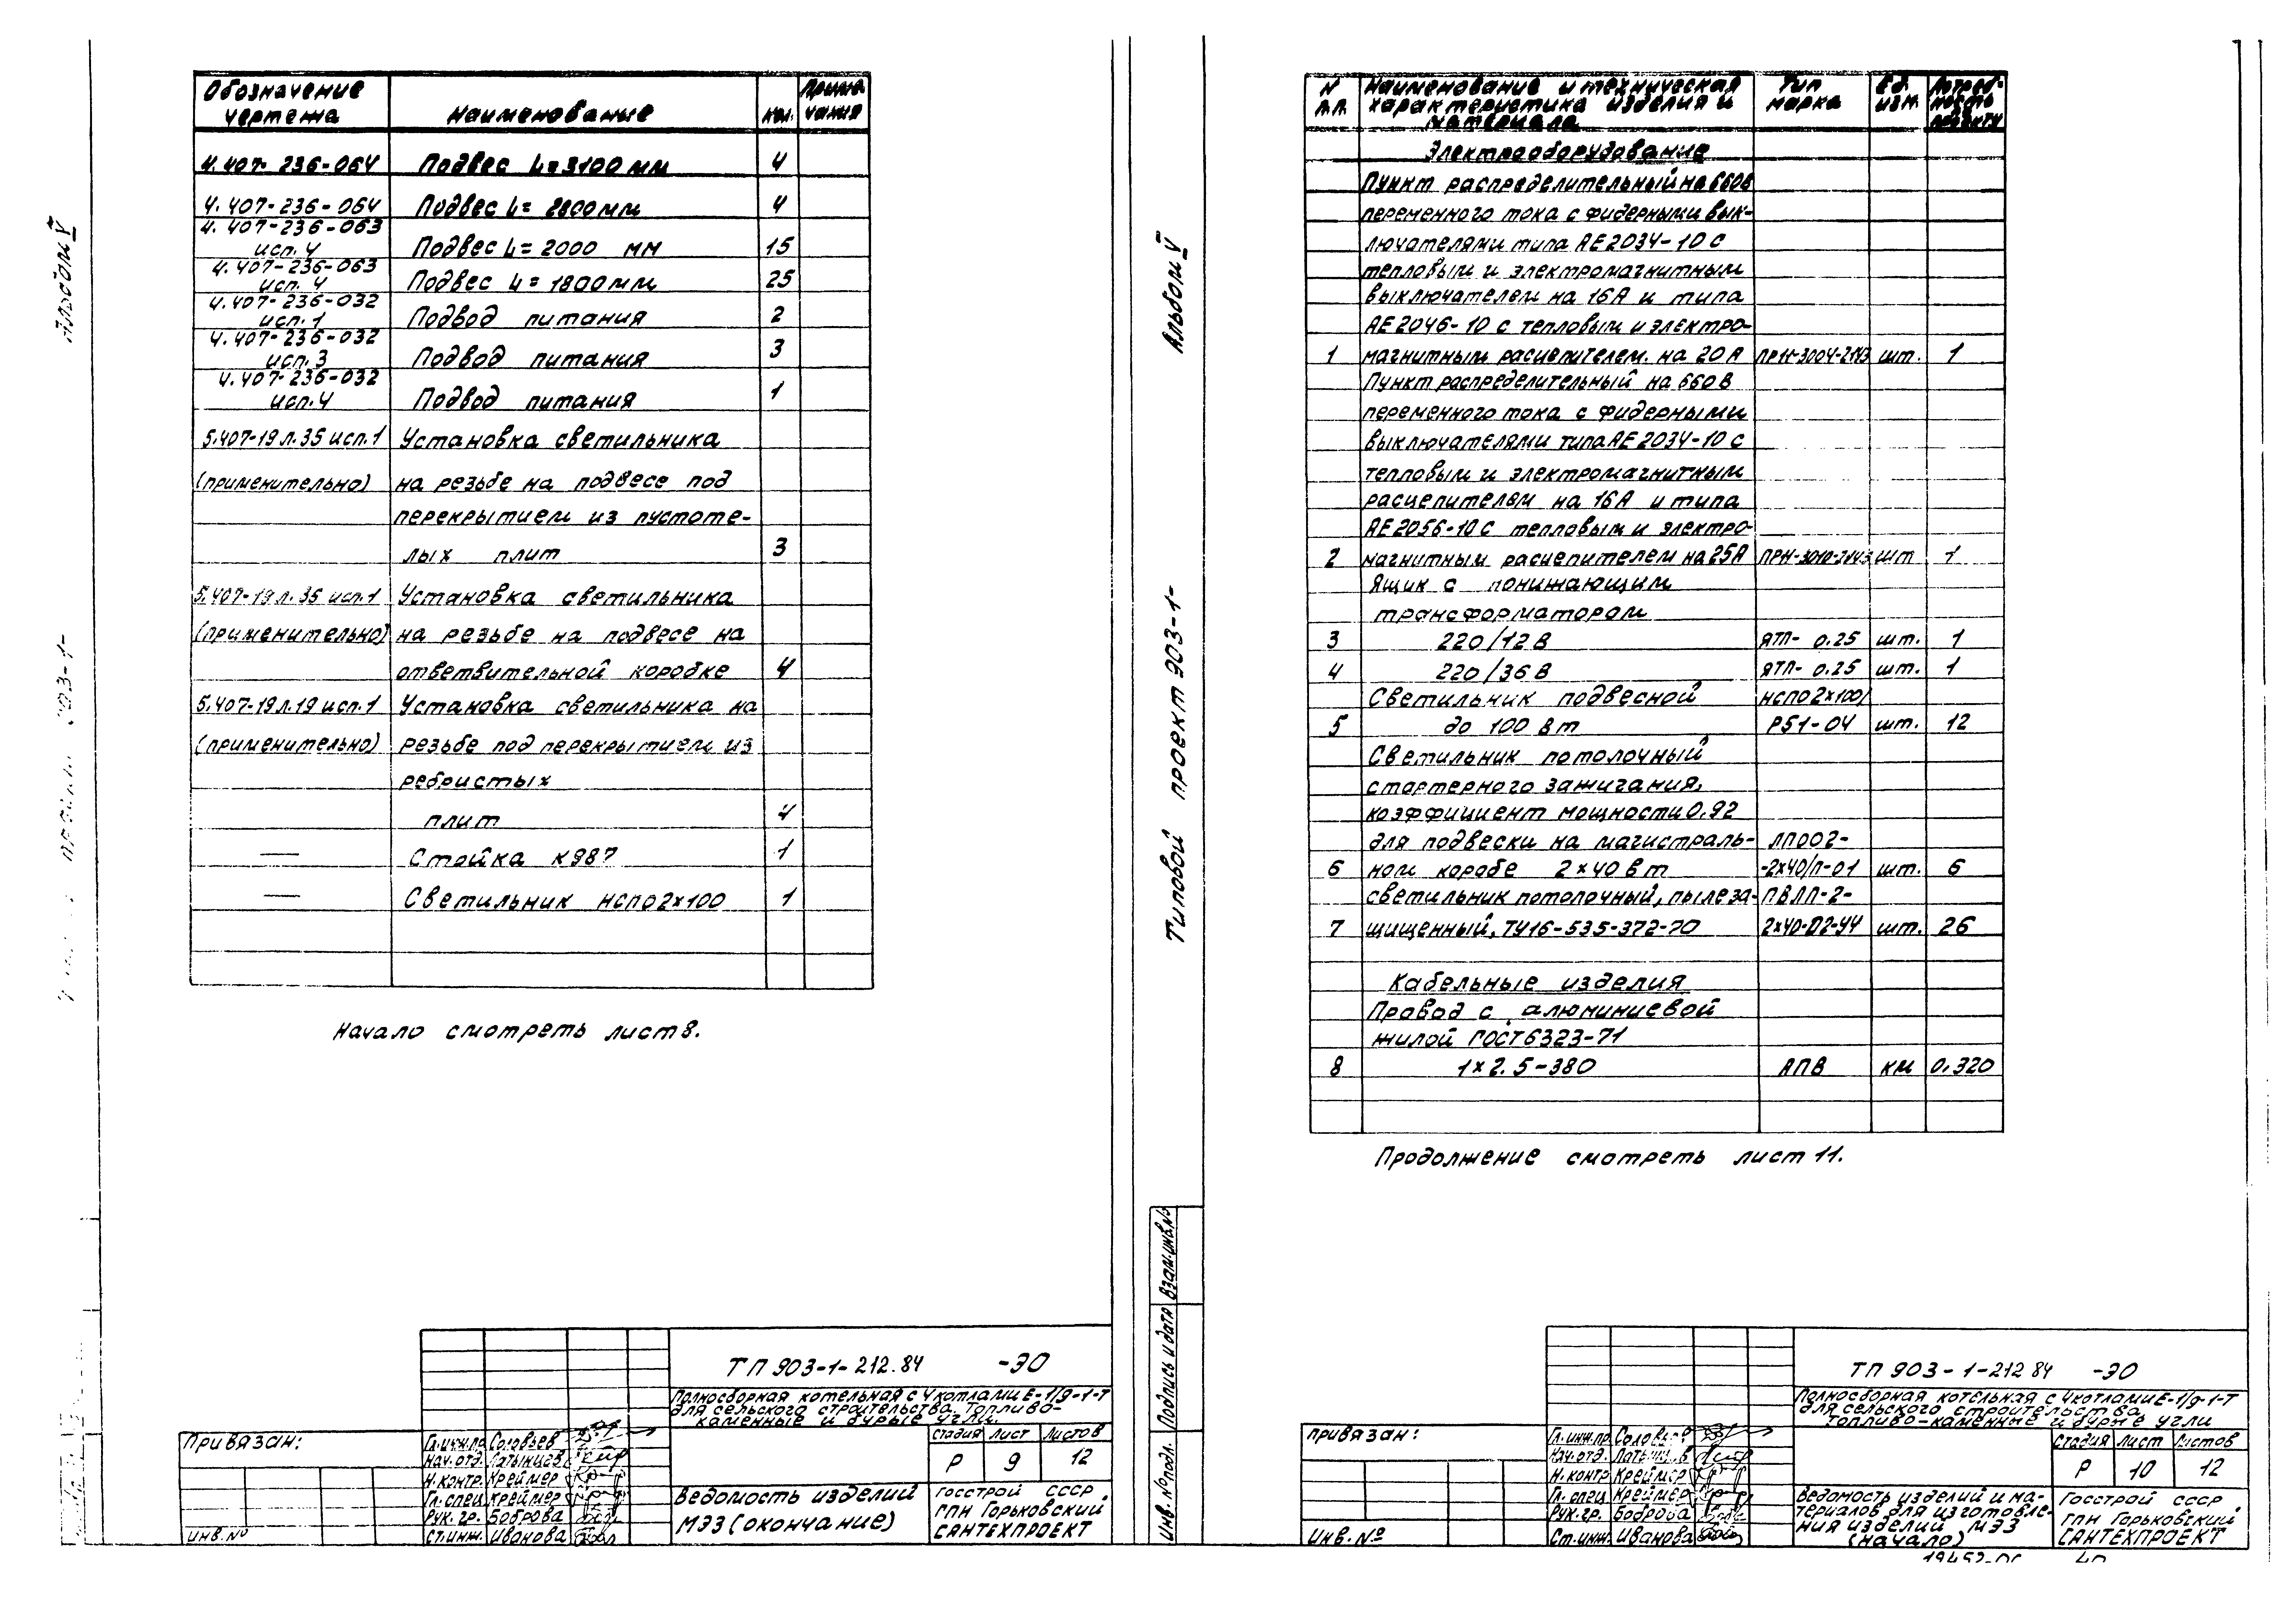 Альбом V
Обозначение чертежа Наименование кол. Примечания
4.407-236-064 Подвес L=3100 мм 4
4.407-236-064 Подвес L=2800 мм 4
4.407-236-063
исп. 4 Подвес L=2000 мм 15
4.407-236-063
исп. 4 Подвес L=1800 мм 25
4.407-236-032
исп. 1 Подвод питания 2
4.407-236-032
исп. 3 Подвод питания 3
4.407-236-032
исп. 4 Подвод питания 1
5.407-19 л. 35 исп. 1 Установка светильника
(применительно) на резьбе на подвесе под
перекрытием из пустоте-
лых плит 3
5.407-19 л. 35 исп. 1 Установка светильника
(применительно) на резьбе на подвесе на
ответвительной коробке 4
5.407-19 л. 19 исп. 1 Установка светильника на
(применительно) резьбе под перекрытием из
ребристых
плит 4
— Стойка К987 1
— Светильник НСП02×100 1
Начало смотреть лист 8.
ТП 903-1-212.84 -ЭО
Полносборная котельная с 4 котлами Е-1/9-1-Т
для сельского строительства. Топливо-
каменные и бурые угли.
Привязан:
Инв. №
Гл. инж. пр. Соловьев
Нач. отд. Латынцев
Н. контр. Креймер
Гл. спец. Креймер
Рук. гр. Боброва
Ст. инж. Иванова
Стадия Лист Листов
Р 9 12
Ведомость изделий
МЭЗ (окончание)
Госстрой СССР
ГПИ Горьковский
САНТЕХПРОЕКТ
Альбом V
Типовой проект 903-1-
Взам. инв. №
Подпись и дата
Инв. № подл.
N Наименование и техническая Тип Ед. Потреб-
п.п. характеристика изделия и марка изм. ность
материала проекту
Электрооборудование
Пункт распределительный на 660В
переменного тока с фидерными вык-
лючателями типа АЕ2034-10 с
тепловым и электромагнитным
выключателем на 16А и типа
АЕ2046-10 с тепловым и электро-
1 магнитным расцепителем. на 20А ПР11-3004-21У3 шт. 1
Пункт распределительный на 660 В
переменного тока с фидерными
выключателями типа АЕ2034-10 с
тепловым и электромагнитным
расцепителем на 16А и типа
АЕ2056-10 с тепловым и электро-
2 магнитным расцепителем на 25А ПР11-3010-21У3 шт 1
Ящик с понижающим
трансформатором
3 220/12 В ЯТП- 0.25 шт. 1
4 220/36 В ЯТП- 0.25 шт. 1
Светильник подвесной НСП02×100/
5 до 100 Вт Р51-04 шт. 12
Светильник потолочный
стартерного зажигания,
коэффициент мощности 0.92
для подвески на магистраль- ЛП002-
6 ном коробе 2×40 Вт -2×40/П-01 шт. 6
светильник потолочный, пылеза- ПВЛП-2-
7 щищенный, ТУ16-535-372-70 2×40-02-У4 шт. 26
Кабельные изделия
Провод с алюминиевой
жилой ГОСТ 6323-71
8 1×2.5-380 АПВ км 0.320
Продолжение смотреть лист 11.
ТП 903-1-212.84 -ЭО
Полносборная котельная с 4 котлами Е-1/9-1-Т
для сельского строительства
Топливо-каменные и бурые угли
Привязан:
Инв. №
Гл. инж. пр. Соловьев
Нач. отд. Латынцев
Н. контр. Креймер
Гл. спец. Креймер
Рук. гр. Боброва
Ст. инж. Иванова
Стадия Лист Листов
Р 10 12
Ведомость изделий и ма-
териалов для изготовле-
ния изделий МЭЗ
(начало)
Госстрой СССР
ГПИ Горьковский
САНТЕХПРОЕКТ